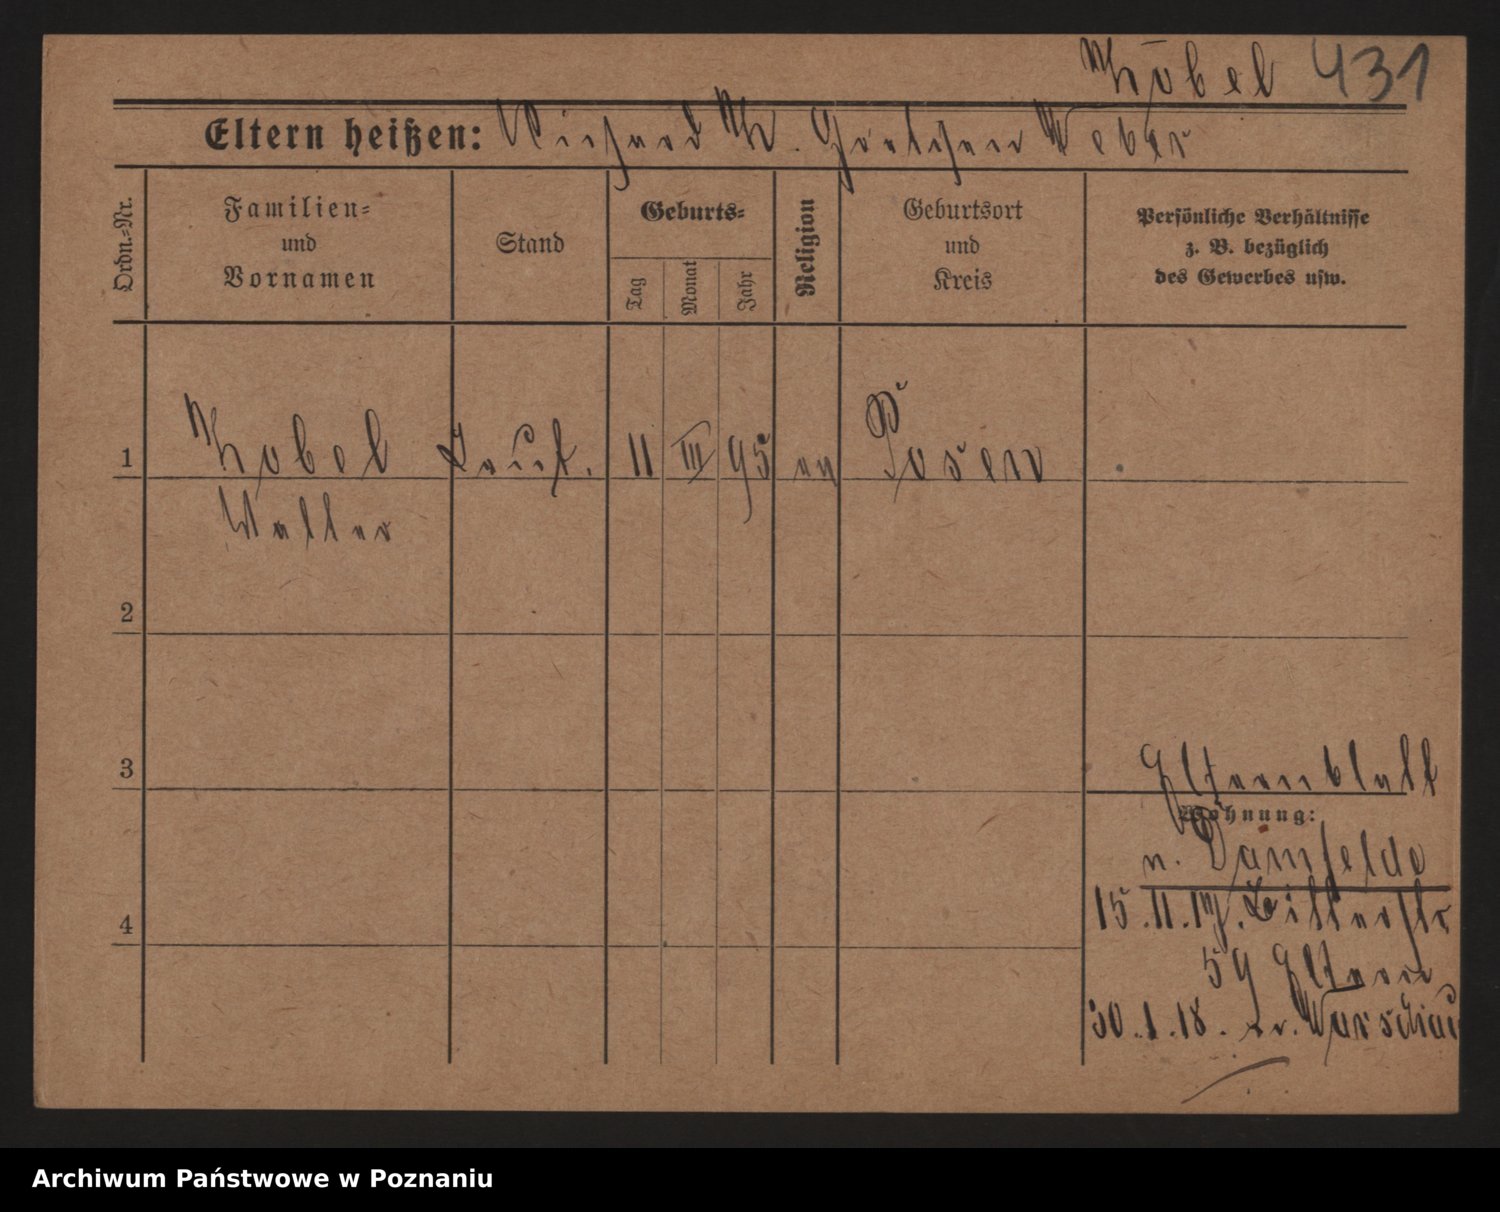 431
Eltern heißen: Richard Gretchen Weber
Ordn.-Nr.
Familien-
und
Vornamen
Stand
Geburts-
Tag
Monat
Jahr
Religion
Geburtsort
und
Kreis
Persönliche Verhältnisse
z. B. bezüglich
des Gewerbes usw.
1
11 III 95 ev Posen
Walter
2
3
Elternblatt
Wohnung:
4
15.11.17. Ritterstr
59 Eltern
30.1.18. Warschau
Archiwum Państwowe w Poznaniu